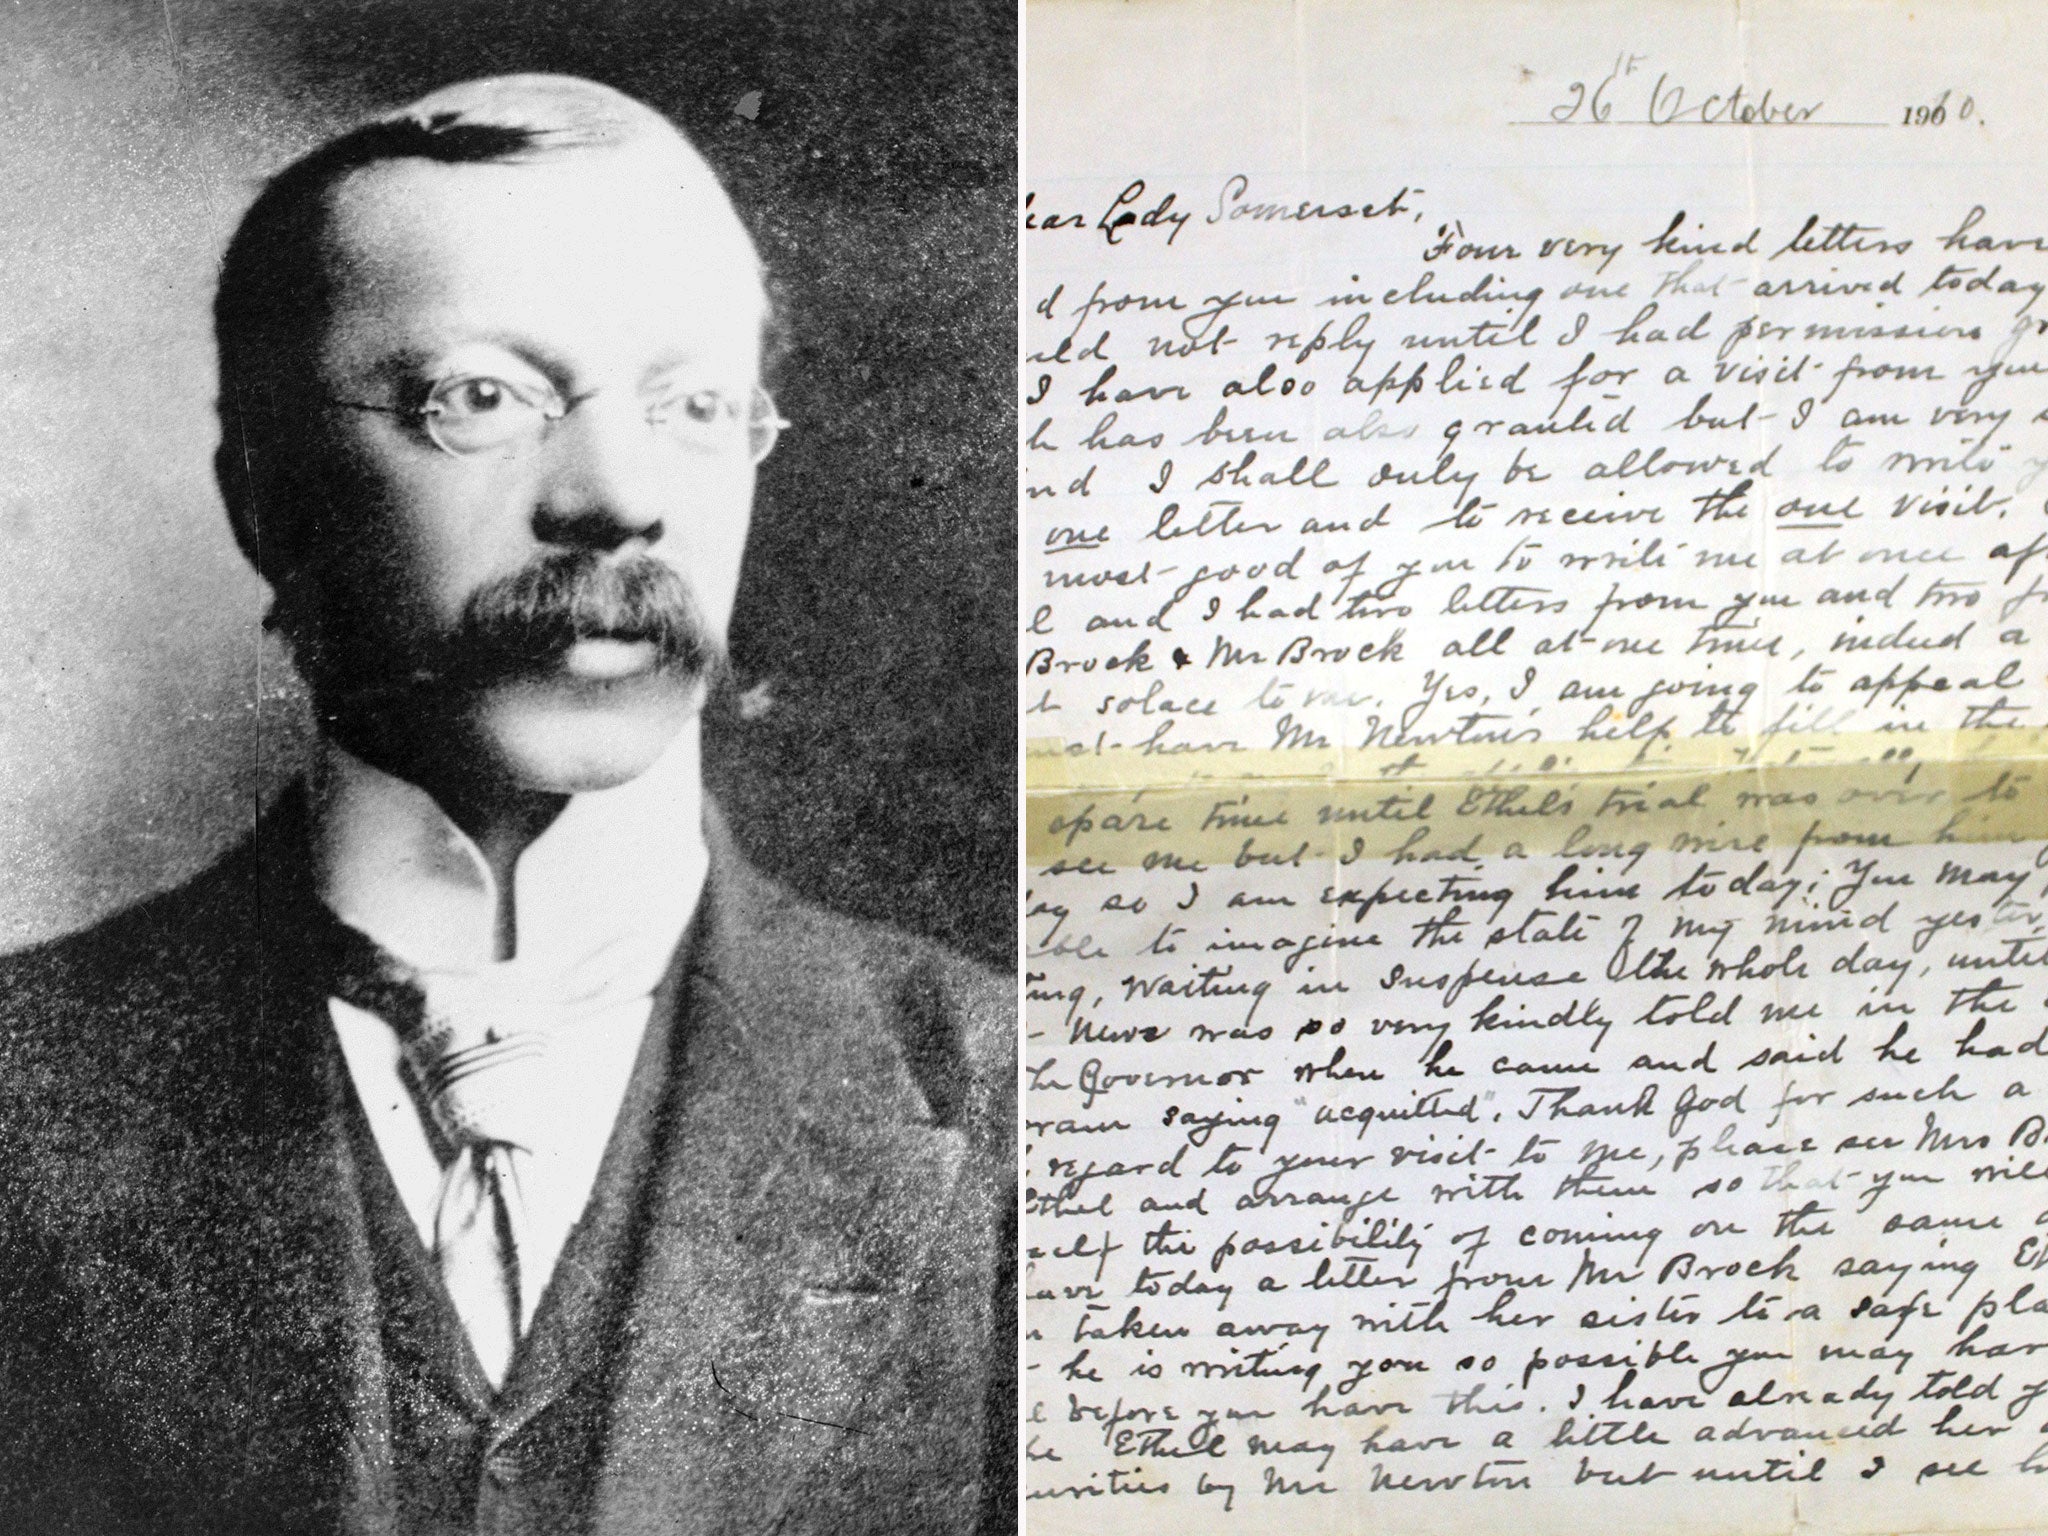 26th October 1910.
ear Lady Somerset,
Four very kind letters have
d from you including one that arrived today
uld not reply until I had permission gr
I have also applied for a visit from you
h has been also granted but I am very s
nd I shall only be allowed to write y
one letter and to receive the one visit.
most good of you to write me at once aft
l and I had two letters from you and two fr
Brock & Mr Brock all at one time, indeed a
t solace to me. Yes, I am going to appeal
ust have Mr Newton's help to fill in the
spare time until Ethel's trial was over to
see me but I had a long wire from him
day so I am expecting him today; You may
able to imagine the state of my mind yester
ting, waiting in suspense the whole day, until
t news was so very kindly told me in the
the Governor when he came and said he had
gram saying "acquitted". Thank God for such a
regard to your visit to me, please see Mrs B
Ethel and arrange with them so that you will
self the possibility of coming on the same d
have today a letter from Mr Brock saying Et
n taken away with her sister to a safe pla
t he is writing you so possible you may hav
l before you have this. I have already told y
he Ethel may have a little advanced her
urities by Mr Newton but until I see h